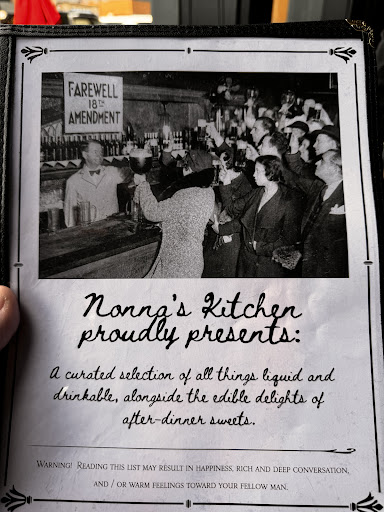 FAREWELL
18TH
AMENDMENT
Nonna's Kitchen
proudly presents:
A curated selection of all things liquid and
drinkable, alongside the edible delights of
after-dinner sweets.
WARNING! READING THIS LIST MAY RESULT IN HAPPINESS, RICH AND DEEP CONVERSATION,
AND / OR WARM FEELINGS TOWARD YOUR FELLOW MAN.